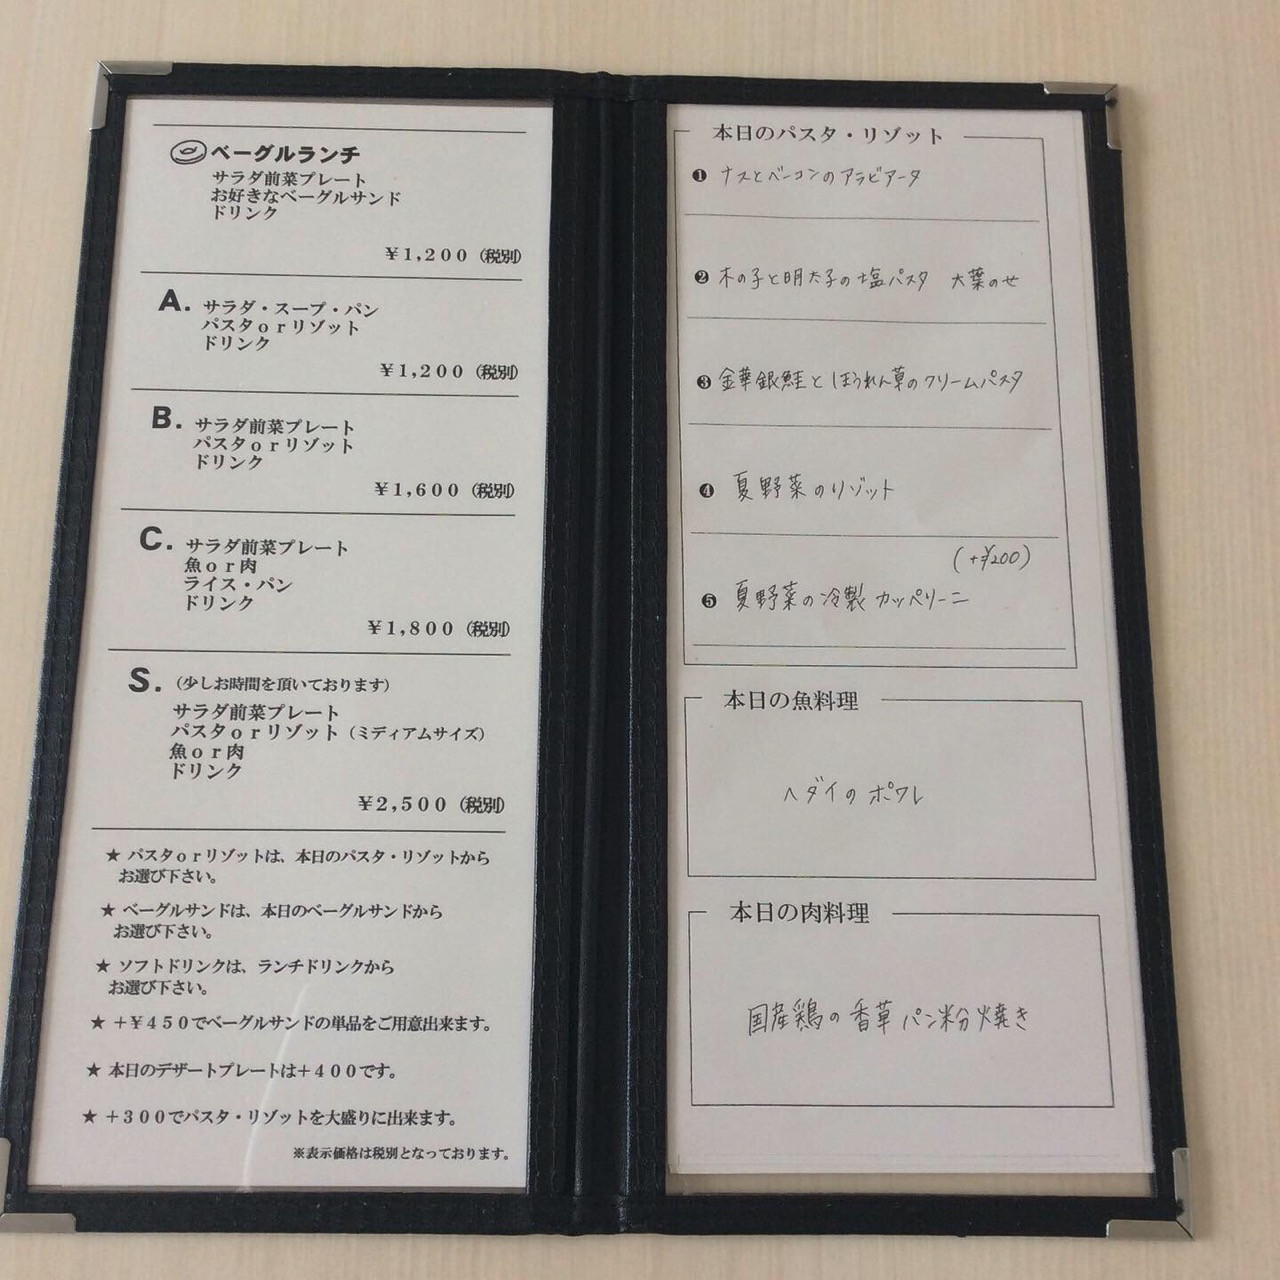 ベーグルランチ
サラダ前菜プレート
お好きなベーグルサンド
ドリンク
¥1,200(税別)
A. サラダ・スープ・パン
パスタorリゾット
ドリンク
¥1,200(税別)
B. サラダ前菜プレート
パスタorリゾット
ドリンク
¥1,600(税別)
C. サラダ前菜プレート
魚or肉
ライス・パン
ドリンク
¥1,800(税別)
S. (少しお時間を頂いております)
サラダ前菜プレート
パスタorリゾット(ミディアムサイズ)
魚or肉
ドリンク
¥2,500(税別)
★ パスタorリゾットは、本日のパスタ・リゾットから
お選び下さい。
★ ベーグルサンドは、本日のベーグルサンドから
お選び下さい。
★ ソフトドリンクは、ランチドリンクから
お選び下さい。
★ +¥450でベーグルサンドの単品をご用意出来ます。
★ 本日のデザートプレートは+400です。
★ +300でパスタ・リゾットを大盛りに出来ます。
※表示価格は税別となっております。
本日のパスタ・リゾット
❶ ナスとベーコンのアラビアータ
❷ 木の子と明太子の塩パスタ 大葉のせ
❸ 金華銀鮭とほうれん草のクリームパスタ
❹ 夏野菜のリゾット
(+¥200)
❺ 夏野菜の冷製カッペリーニ
本日の魚料理
ヘダイのポワレ
本日の肉料理
国産鶏の香草パン粉焼き